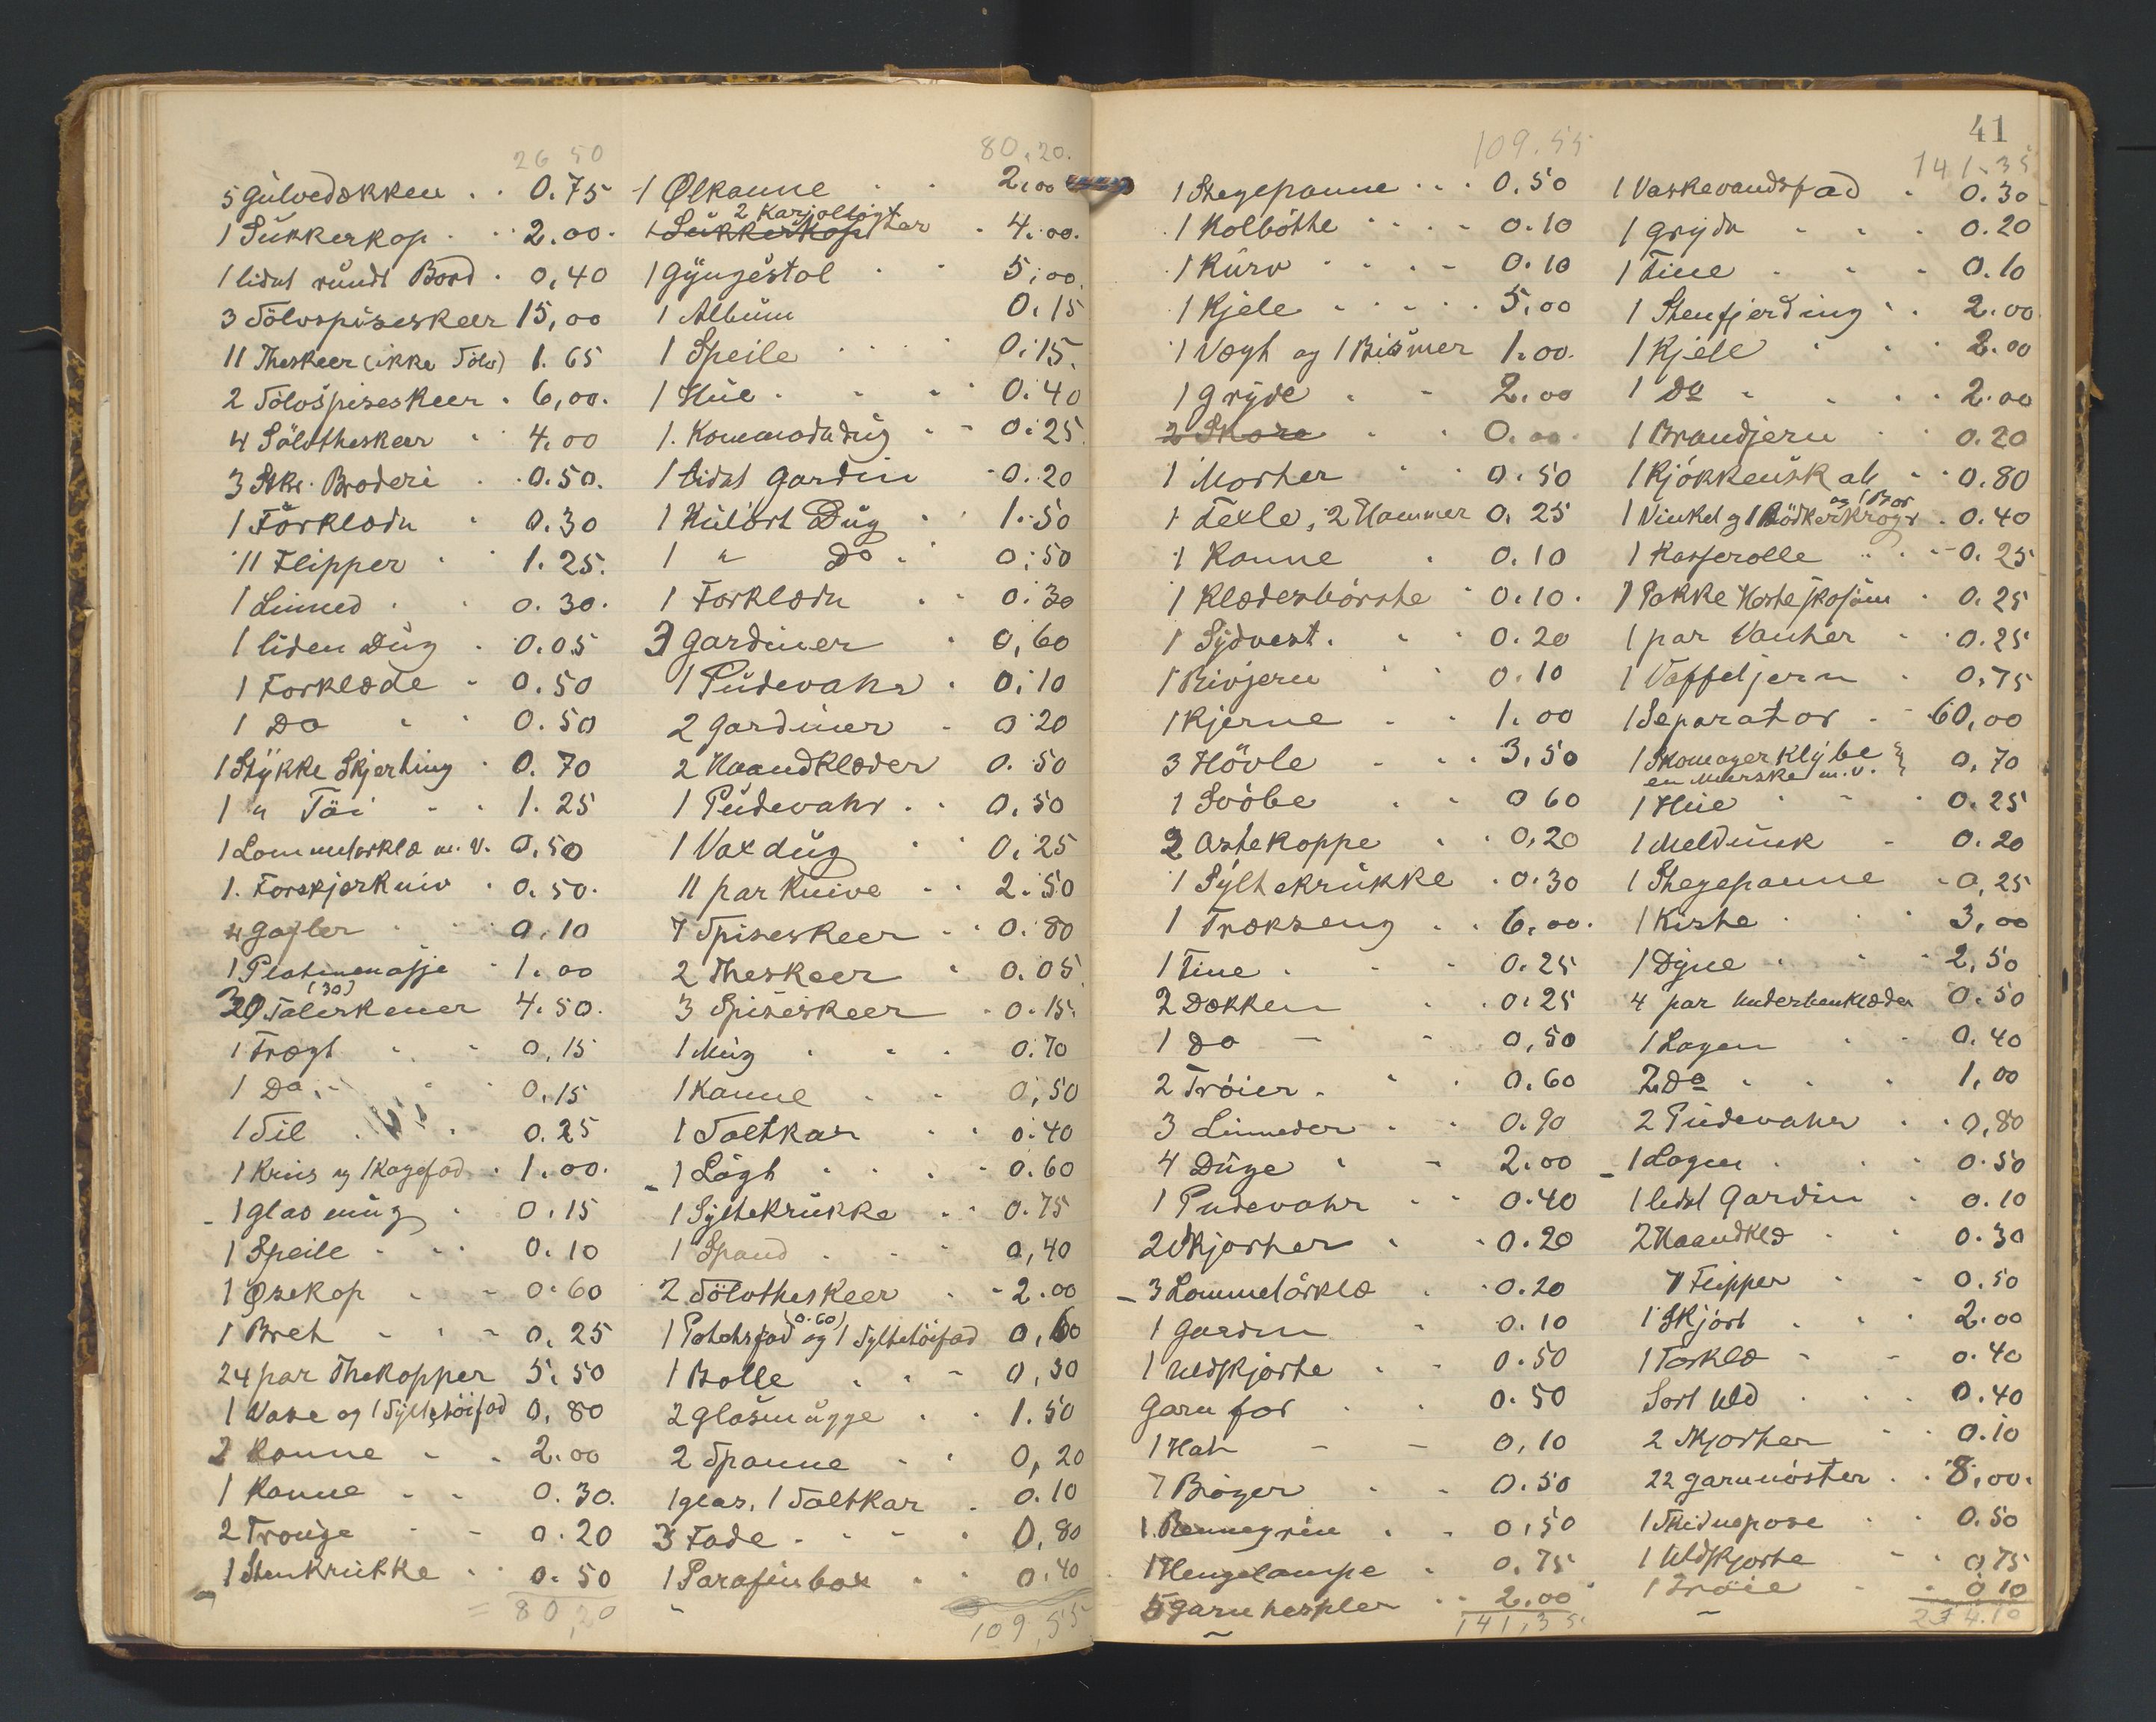 26 50
5 Gulvedækken . . 0.75
1 Sukkerkop . . 2.00.
1 lidet rundt Bord . 0,40
3 Sölvspiseskeer 15,00
11 Theskeer (ikke Sölv) 1.65
2 Sölvspiseskeer . 6,00.
4 Sölvtheskeer . 4.00
3 Stkr. Broderi . . 0.50.
1 Förklæde . 0.30
11 Flipper . 1.25.
1 Linned . . 0.30.
1 liden Dug . 0.05
1 Forklæde . 0.50
1 Do . . 0.50
1 Stykke Skjerting . 0.70
1 " Töi . . 1.25
1 Lommetørklæ m. v. 0,50
1. Forskjærkniv . 0.50.
4 Gafler . . 0.10
1 Platmenasje . 1.00
(30)
29 Talerkener 4.50.
1 Trægt . . 0,15
1 Do . . 0,15
1 Sil . . 0.25
1 Krus og 1 Kagefad . 1.00.
1 Glasmug . 0.15
1 Speile . . 0.10
1 Øsekop . . 0.60
1 Bret . . . 0.25
24 par Thekopper 5.50
1 Vase og 1 Syltetöifad 0,80
2 Kanne . . 2.00
1 Kanne . . 0.30.
2 Trauge . . 0.20
1 Stenkrukke . . 0.50
= 80,20
80,20.
1 Ølkanne . . 2,00
2 Karjolløgter
1 Sukkerkop . 4.00.
1 Gyngestol . . 5,00.
1 Album 0.15
1 Speile . . . 0.15.
1 Hue . . . 0.40
1. Komodedug . . 0.25.
1 lidet Gardin . 0.20
1 Kulört Dug . . 1.50
1 " Do . 0.50
1 Forklæde . . 0.30
3 Gardiner . 0,60
1 Pudevahr . 0.10
2 Gardiner . 0.20
2 Haandklæder 0.50
1 Pudevahr . . 0.50
1 Voxdug . . 0.25
11 par Knive . . 2.50
7 Spiseskeer . . 0.80
2 Theskeer . 0.05
3 Spiseskeer . 0.15.
1 Mug . . . 0.70
1 Kanne . . 0,50
1 Saltkar . . 0.40
1 Lögt . . . 0.60
1 Syltekrukke . . 0.75
1 Spand . . . 0,40
2 Sölvtheskeer . . 2.00
(0.60)
1 Potetsfad og 1 Syltetöifad 0,60
1 Bolle . . . 0,30
2 Glasmugge . . 1.50
2 Spanne . . 0,20
1 glas, 1 Saltkar . 0.10
3 Fade . . . 0,80
1 Parafinbox . . 0.40
109,55
41
109.55
1 Stegepanne . . . 0.50
1 Kolbötte . . . . 0.10
1 Kurv . . . . 0.10
1 Kjele . . . . 5.00
1 Vægt og 1 Bismer 1.00.
1 Gryde . . 2.00
2 Skore . . 0.00.
1 Morter . . 0.50
1 Texle, 2 Hammer 0.25
1 Kanne . 0.10
1 Klædesbörste . 0.10.
1 Sydvest . . . 0.20
1 Rivjern . . 0.10
1 Kjerne . . 1.00
3 Hövle . . . 3,50
1 Svöbe . . 0 60
2 Ostekoppe . . 0,20
1 Syltekrukke . 0.30
1 Trækseng . . 6,00.
1 Tine . . . 0.25
2 Dækken . . 0.25
1 Do . . 0,50
2 Tröier . . . 0.60
3 Linneder . . 0.90
4 Duge . . 2.00
1 Pudevahr . . 0.40
2 Skjorter . . 0.20
3 Lommetörklæ . . 0.20
1 Gardin . . 0.10
1 Uldskjorte . . 0.50
Garn for . . 0.50
1 Hat . . 0,10
7 Bøger . . 0.50
1. . . 0,50
1 Hengelampe . 0.75
5 Garnhespler . . 2.00
141,35.
141.35
1 Vaskevandsfad . 0.30
1 Gryde . . . 0.20
1 Tine . . . 0.10
1 Stenfjerding . . 2.00
1 Kjele . . . 2.00
1 Do . . . . 2.00
1 Brandjern . . 0.20
1 Kjökkenskab . . 0.80
og 1 Bor
1 Vinkel og 1 Bödkerkrog . 0.40
1 Kasserolle . . . 0.25
1 Pakke Hesteskosöm . 0.25
1 par Vanter . . 0.25
1 Vaffeljern . 0,75
1 Separator . . 60,00
1 Skomagerklybe } 0,70
en Merske m.v.
1 Hue . . . 0.25
1 Meldunk . 0.20
1 Stegepanne . 0,25
1 Kiste . . . 3,00
1 Dyne . . . 2,50
4 par Underbenklæder 0.50
1 Lagen . . 0.40
2 Do . . . 1,00
2 Pudevahr . . 0,80
1 Lagen . . . 0.50
1 lidet Gardin . 0.10
2 Haandklæ . . 0.30
7 Flipper . . 0.50
1 Skjört . . . 2.00
1 Forklæ . . 0.40
Sort Uld . . . 0.40
2 Skjorter . . 0.10
22 Garnnöster . . 8,00.
1 Skindpose . . 0.50
1 Uldskjorte . . 0,75
1 Tröie . . 0.10
234.10